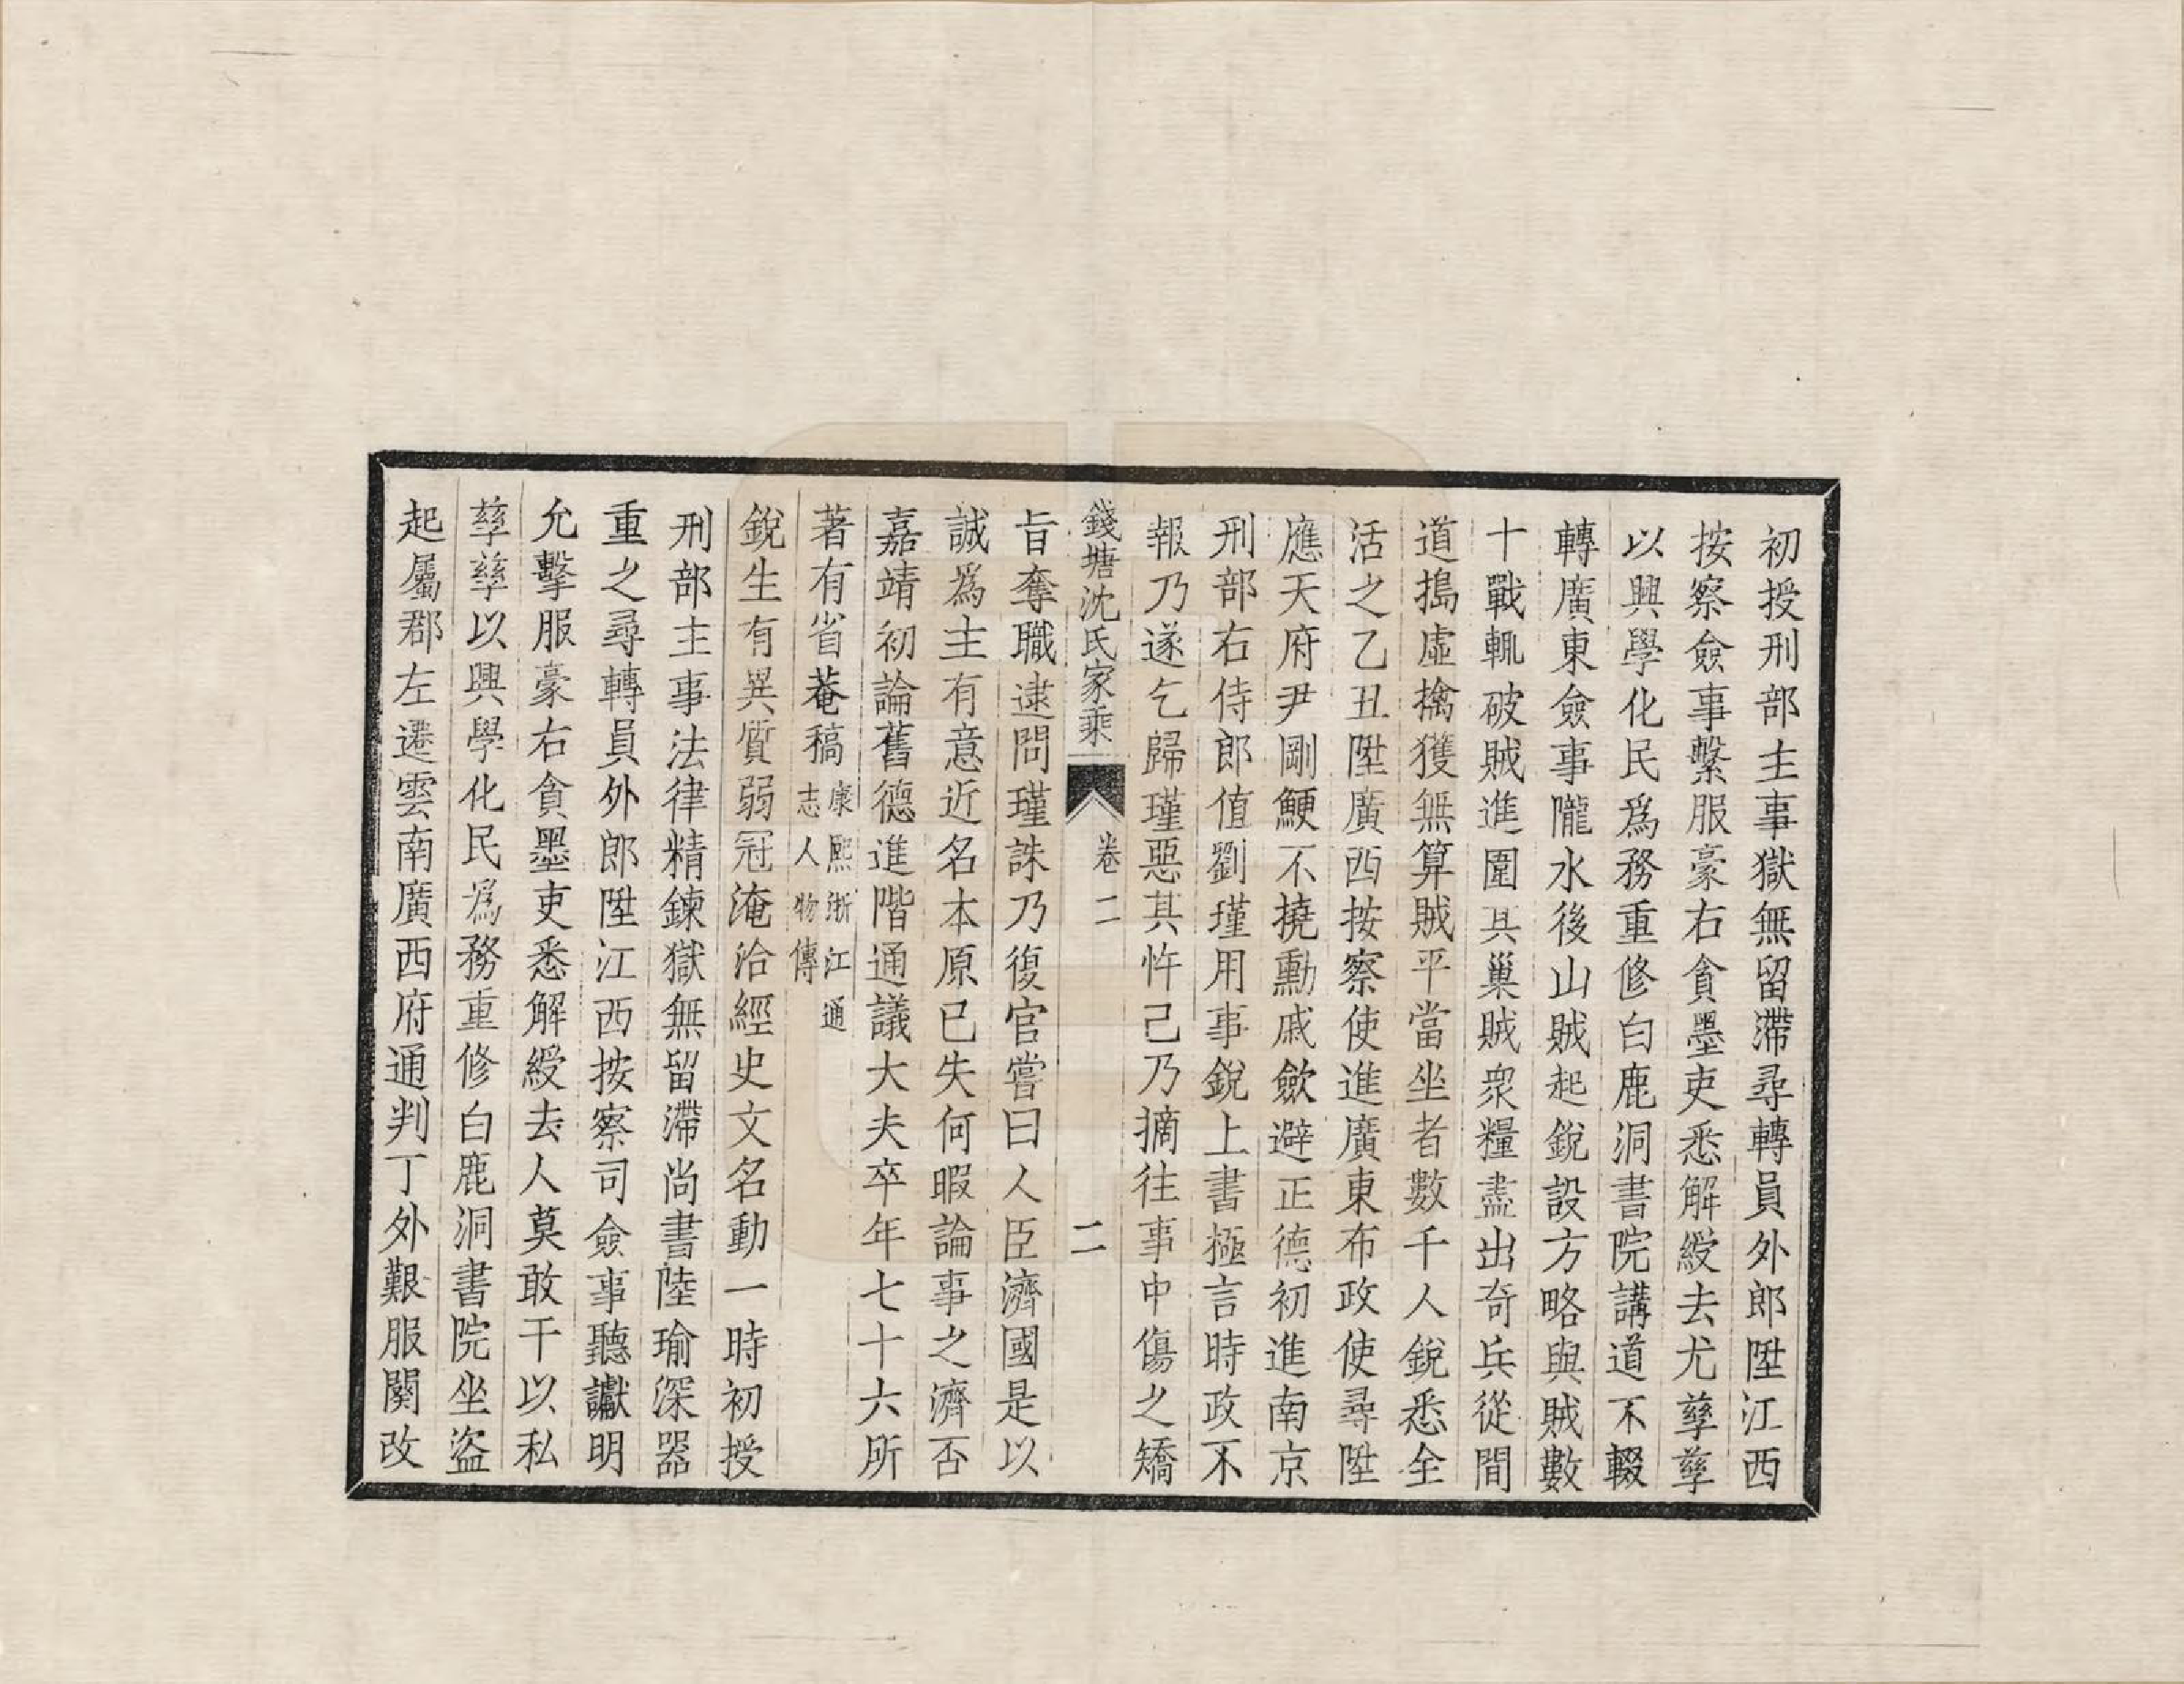 初授刑部主事獄無留滯尋轉員外郎陞江西
按察僉事繫服豪右貪墨吏悉解綬去尤孳孳
以興學化民爲務重修白鹿洞書院講道不輟
轉廣東僉事隴水後山賊起銳設方略與賊數
十戰輒破賊進圍其巢賊衆糧盡出奇兵從間
道搗虛擒獲無算賊平當坐者數千人銳悉全
活之乙丑陞廣西按察使進廣東布政使尋陞
應天府尹剛鯁不撓勳戚歛避正德初進南京
刑部右侍郎值劉瑾用事銳上書極言時政不
報乃遂乞歸瑾惡其忤己乃摘往事中傷之矯
錢塘沈氏家乘 卷二 二
旨奪職逮問瑾誅乃復官嘗曰人臣濟國是以
誠爲主有意近名本原已失何暇論事之濟否
嘉靖初論舊德進階通議大夫卒年七十六所
著有省菴稿康熙浙江通志人物傳
銳生有異質弱冠淹洽經史文名動一時初授
刑部主事法律精鍊獄無留滯尚書陸瑜深器
重之尋轉員外郎陞江西按察司僉事聽讞明
允擊服豪右貪墨吏悉解綬去人莫敢干以私
孳孳以興學化民爲務重修白鹿洞書院坐盜
起屬郡左遷雲南廣西府通判丁外艱服闋改